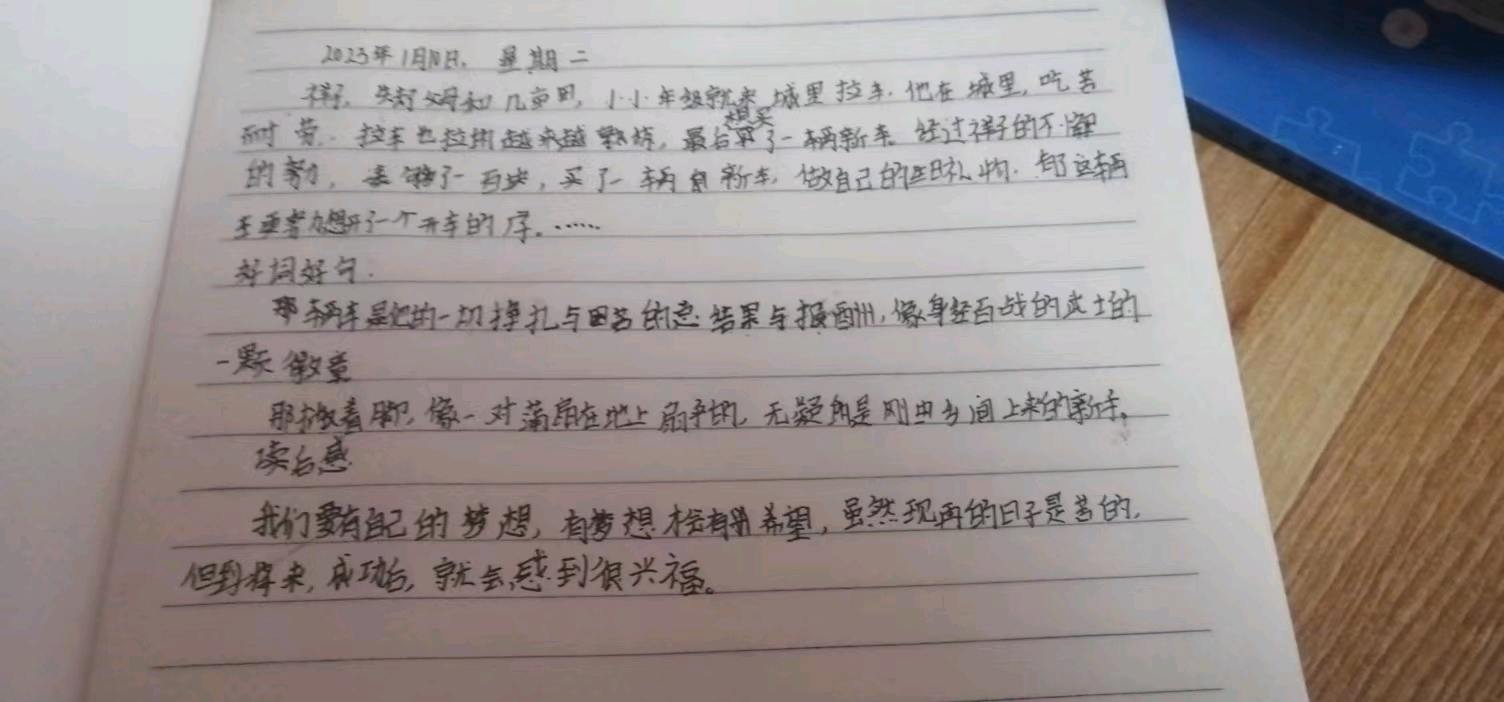 2023年1月10日. 星期二
祥子, 失去父母和几亩田, 小小年级就来城里拉车. 他在城里, 吃苦
想买
耐劳. 拉车也拉的越来越熟练, 最后买了一辆新车. 经过祥子的不懈
的努力, 了一百块, 买了一辆新车, 做自己的生日礼物. 那这辆
车 想开了一个开车的 ......
好词好句.
那辆车是他的一切挣扎与困苦的总结果与报酬, 像身经百战的武士的
一颗徽章
那撇着脚, 像一对蒲扇在地上扇乎的, 无疑的是刚由乡间上来的新手。
读后感
我们要有自己的梦想, 有梦想才会有希望, 虽然现再的日子是苦的,
但到将来, 成功后, 就会感到很兴福。